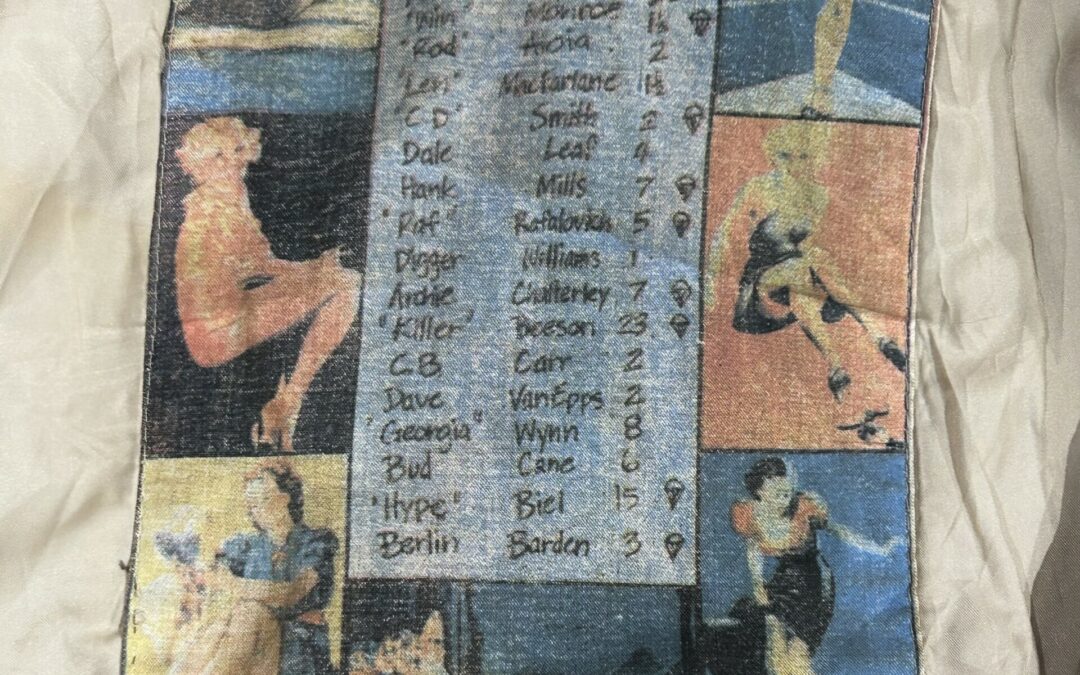 "Win" Monroe 1½
"Rod" Aroia 2
"Len" MacFarlane 1½
"CD" Smith 2
Dale Leaf 4
Hank Mills 7
"Raf" Rafalovich 5
Digger Williams 1
Archie Chatterley 7
"Killer" Beeson 23
CB Carr 2
Dave VanEpps 2
"Georgia" Wynn 8
Bud Cane 6
"Hype" Biel 15
Berlin Barden 3